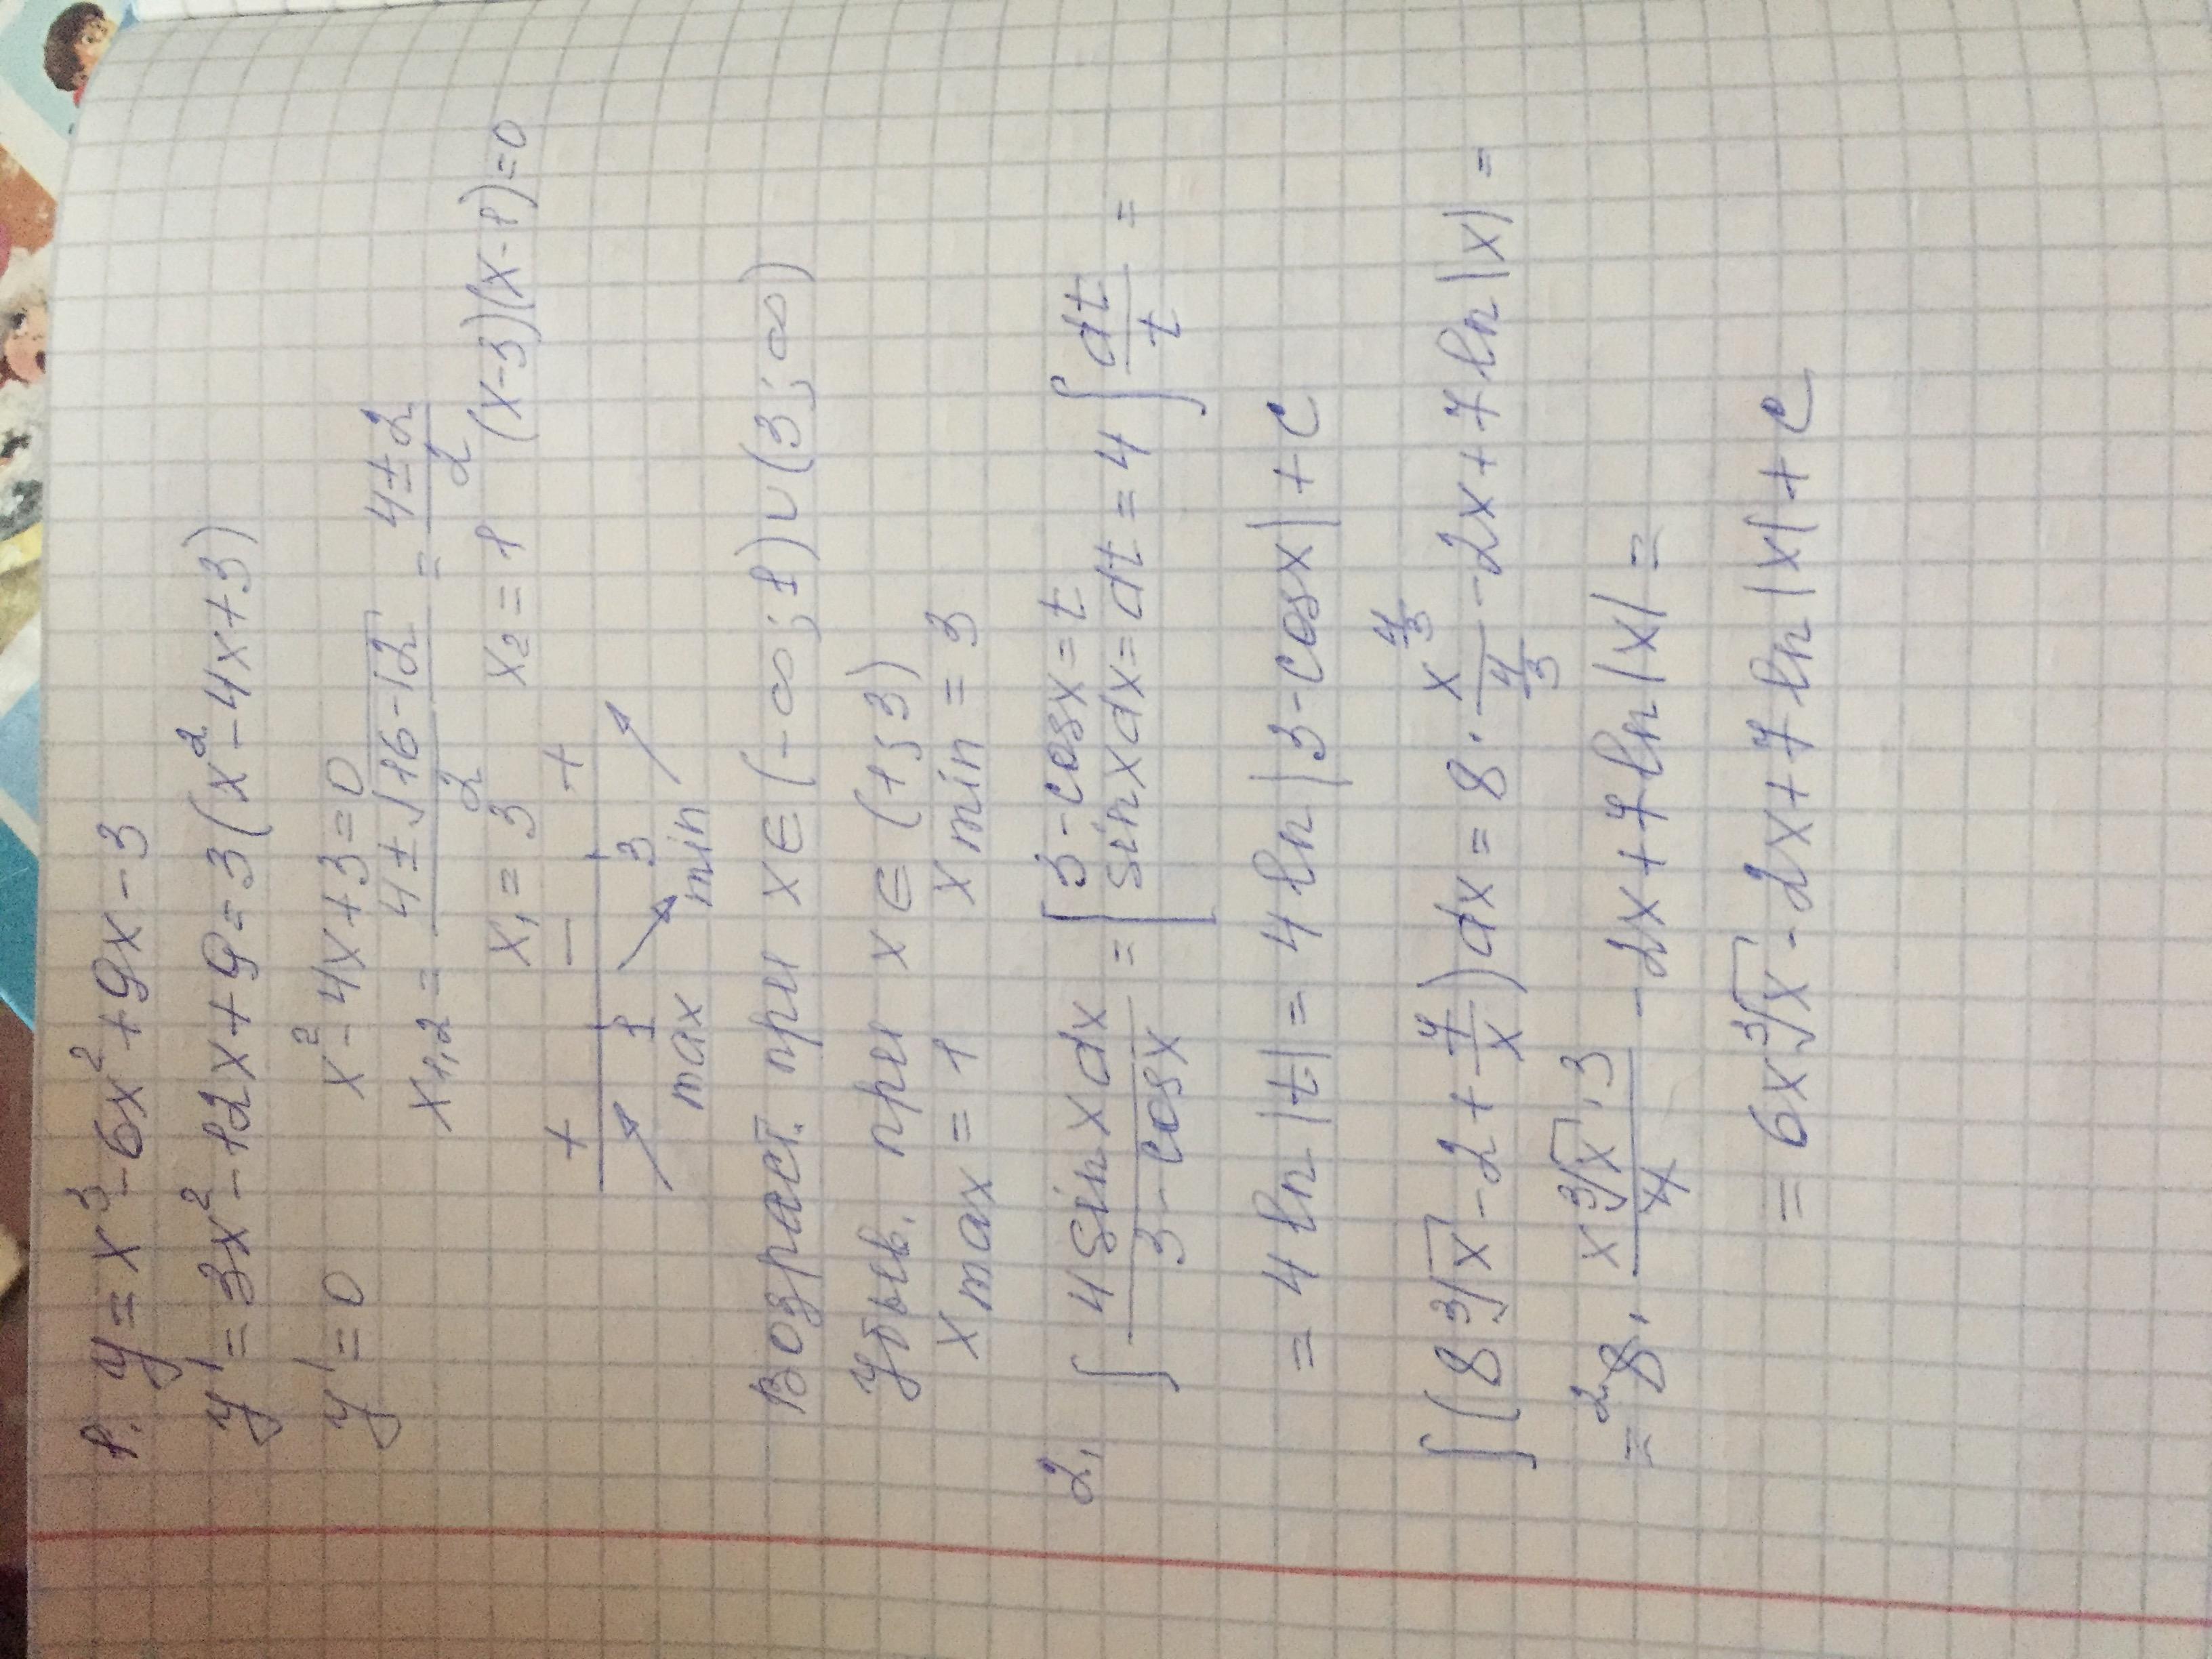 1. y = x³ - 6x² + 9x - 3
y' = 3x² - 12x + 9 = 3(x² - 4x + 3)
y' = 0 x² - 4x + 3 = 0
x₁,₂ = (4 ± √(16 - 12))/2 = (4 ± 2)/2
x₁ = 3 x₂ = 1 (x-3)(x-1)=0
+ − +
1 3
max min
Возраст. при x ∈ (-∞; 1) ∪ (3; ∞)
Убыв. при x ∈ (1; 3)
x max = 1 x min = 3
2. ∫ (4 sin x dx)/(3 - cos x) = [3 - cos x = t
sin x dx = dt = 4 ∫ dt/t =
= 4 ln |t| = 4 ln |3 - cos x| + C
∫ (8 ³√x - 2 + 7/x) dx = 8 · x^(4/3)/(4/3) - 2x + 7 ln |x| =
= ² 8 · (x ³√x · 3)/4 - 2x + 7 ln |x| =
= 6x ³√x - 2x + 7 ln |x| + C